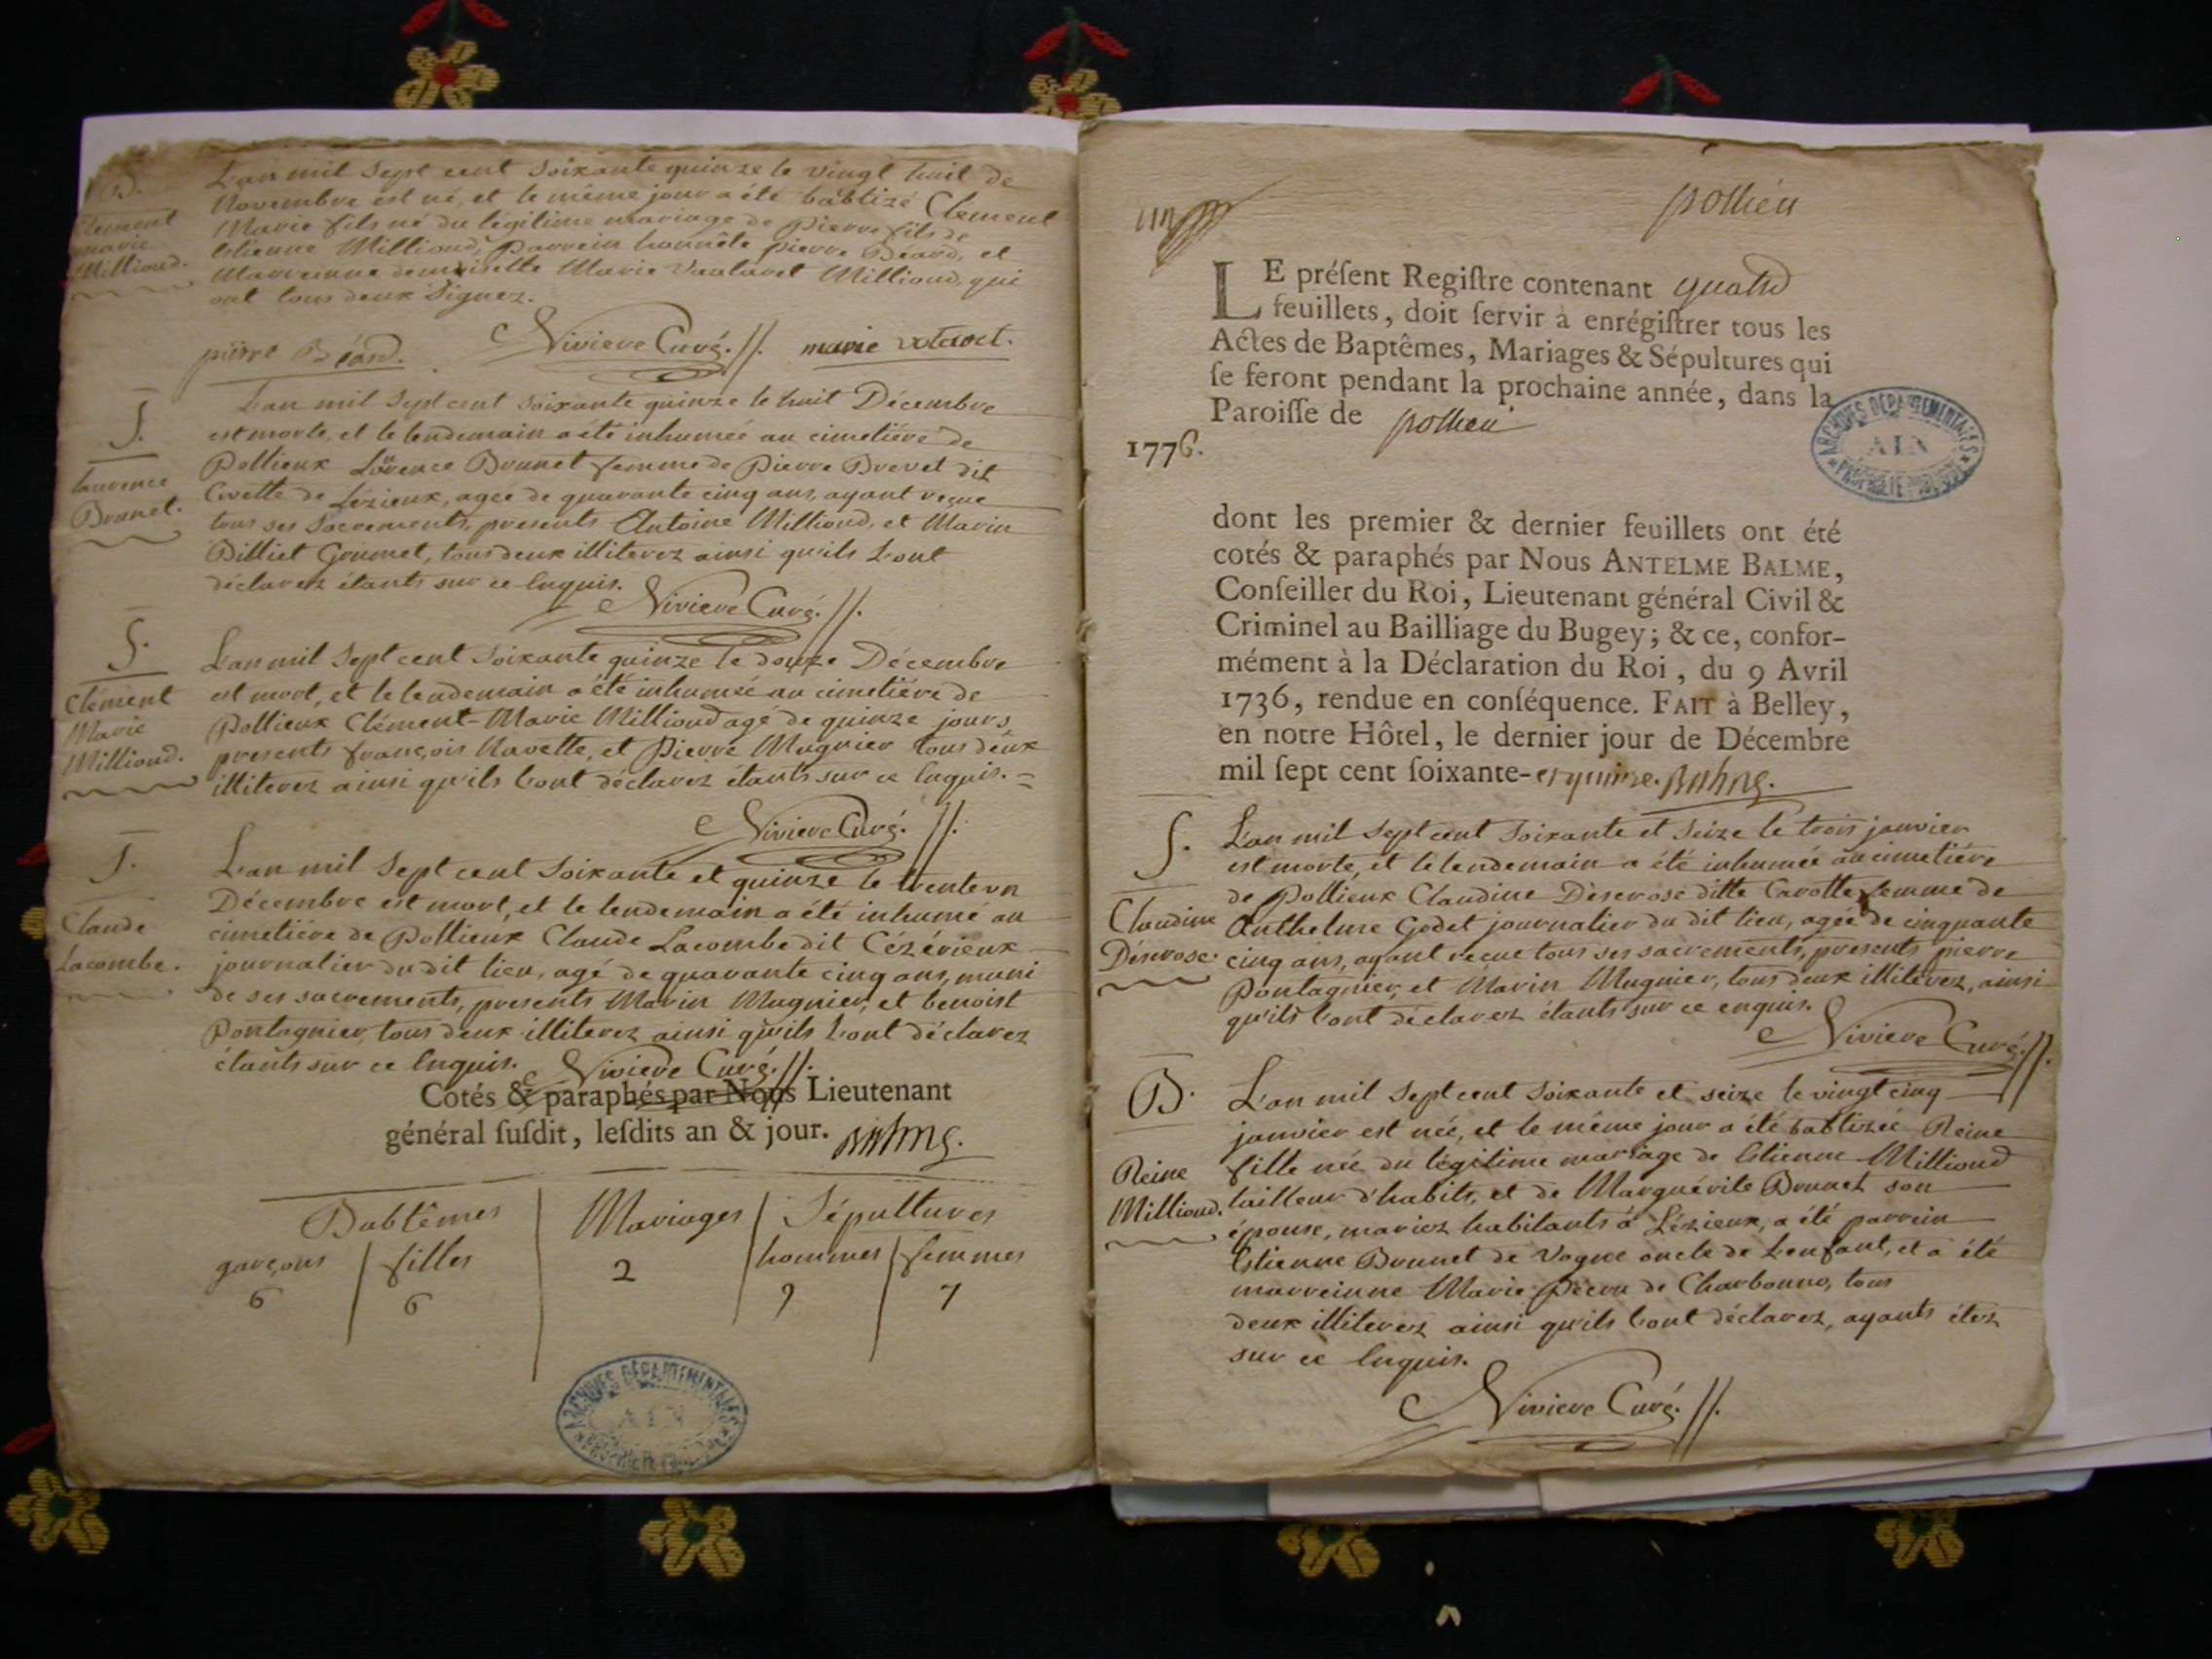 B.
Clement
marie
Millioud.
L'an mil sept cent soixante quinze le vingt huit de
Novembre est né, et le même jour a été babtizé Clement
Marie fils né du légitime mariage de Pierre fils de
Estienne Millioud, Parrein honnête pierre Béard, et
Marreinne demoiselle Marie Vautaret Millioud, qui
ont tous deux signez.
pierre Béard. Niviere Curé. //. marie votaret.
S.
Laurence
Brunet.
L'an mil sept cent soixante quinze le huit Décembre
est morte, et le lendemain a été inhumée au cimetiére de
Pollieux Lorence Brunet femme de Pierre Brevet dit
Civette de Lézieux, agée de quarante cinq ans, ayant reçue
tous ses sacrements, presents Antoine Millioud, et Marin
Billiet Grumet, tous deux illiterez ainsi qu'ils l'ont
déclarez étants sur ce Enquis.
Niviere Curé. //.
S.
Clément
Marie
Millioud.
L'an mil sept cent soixante quinze le douze Décembre
est mort, et le lendemain a été inhumé au cimetiére de
Pollieux Clément-Marie Millioud agé de quinze jours,
presents françois Navette, et Pierre Mugnier tous deux
illiterez ainsi qu'ils l'ont déclarez étants sur ce Enquis. =
Niviere Curé. //.
S.
Claude
Lacombe.
L'an mil sept cent soixante et quinze le trente un
Décembre est mort, et le lendemain a été inhumé au
cimetiére de Pollieux Claude Lacombe dit Cézérieux
journalier du dit lieu, agé de quarante cinq ans, muni
de ses sacrements, presents Marin Mugnier, et benoist
Pontagnier, tous deux illiterez ainsi qu'ils l'ont déclarez
étants sur ce Enquis. Niviere Curé. //.
Cotés & paraphés par Nous Lieutenant
général susdit, lesdits an & jour. Balme.
Babtêmes Mariages Sépultures
garçons filles 2 hommes femmes
6 6 9 7
ARCHIVES DÉPARTEMENTALES
AIN
un
pollieu
LE présent Registre contenant quatre
feuillets, doit servir à enrégistrer tous les
Actes de Baptêmes, Mariages & Sépultures qui
se feront pendant la prochaine année, dans la
Paroisse de pollieu
1776.
ARCHIVES DÉPARTEMENTALES
AIN
PROPRIÉTÉ PUBLIQUE
dont les premier & dernier feuillets ont été
cotés & paraphés par Nous ANTELME BALME,
Conseiller du Roi, Lieutenant général Civil &
Criminel au Bailliage du Bugey; & ce, confor-
mément à la Déclaration du Roi, du 9 Avril
1736, rendue en conséquence. FAIT à Belley,
en notre Hôtel, le dernier jour de Décembre
mil sept cent soixante-et quinze. Balme.
S.
Claudine
Déscrose.
L'an mil sept cent soixante et seize le trois janvier
est morte, et le lendemain a été inhumée au cimetiére
de Pollieux Claudine Déscrose ditte Carotte femme de
Anthelme Godet journalier du dit lieu, agée de cinquante
cinq ans, ayant reçue tous ses sacrements, presents pierre
Pontagnier, et Marin Mugnier, tous deux illiterez, ainsi
qu'ils l'ont déclarez étants sur ce enquis.
Niviere Curé. //.
B.
Reine
Millioud.
L'an mil sept cent soixante et seize le vingt cinq
janvier est née, et le même jour a été babtizée Reine
fille née du légitime mariage de Estienne Millioud
tailleur d'habits, et de Marguérite Brunet son
épouse, mariez habitants à Lézieux, a été parrein
Estienne Brunet de Vogne oncle de L'enfant, et a été
marreinne Marie Pécou de Charbonno, tous
deux illiterez ainsi qu'ils l'ont déclarez, ayants étez
sur ce Enquis.
Niviere Curé. //.